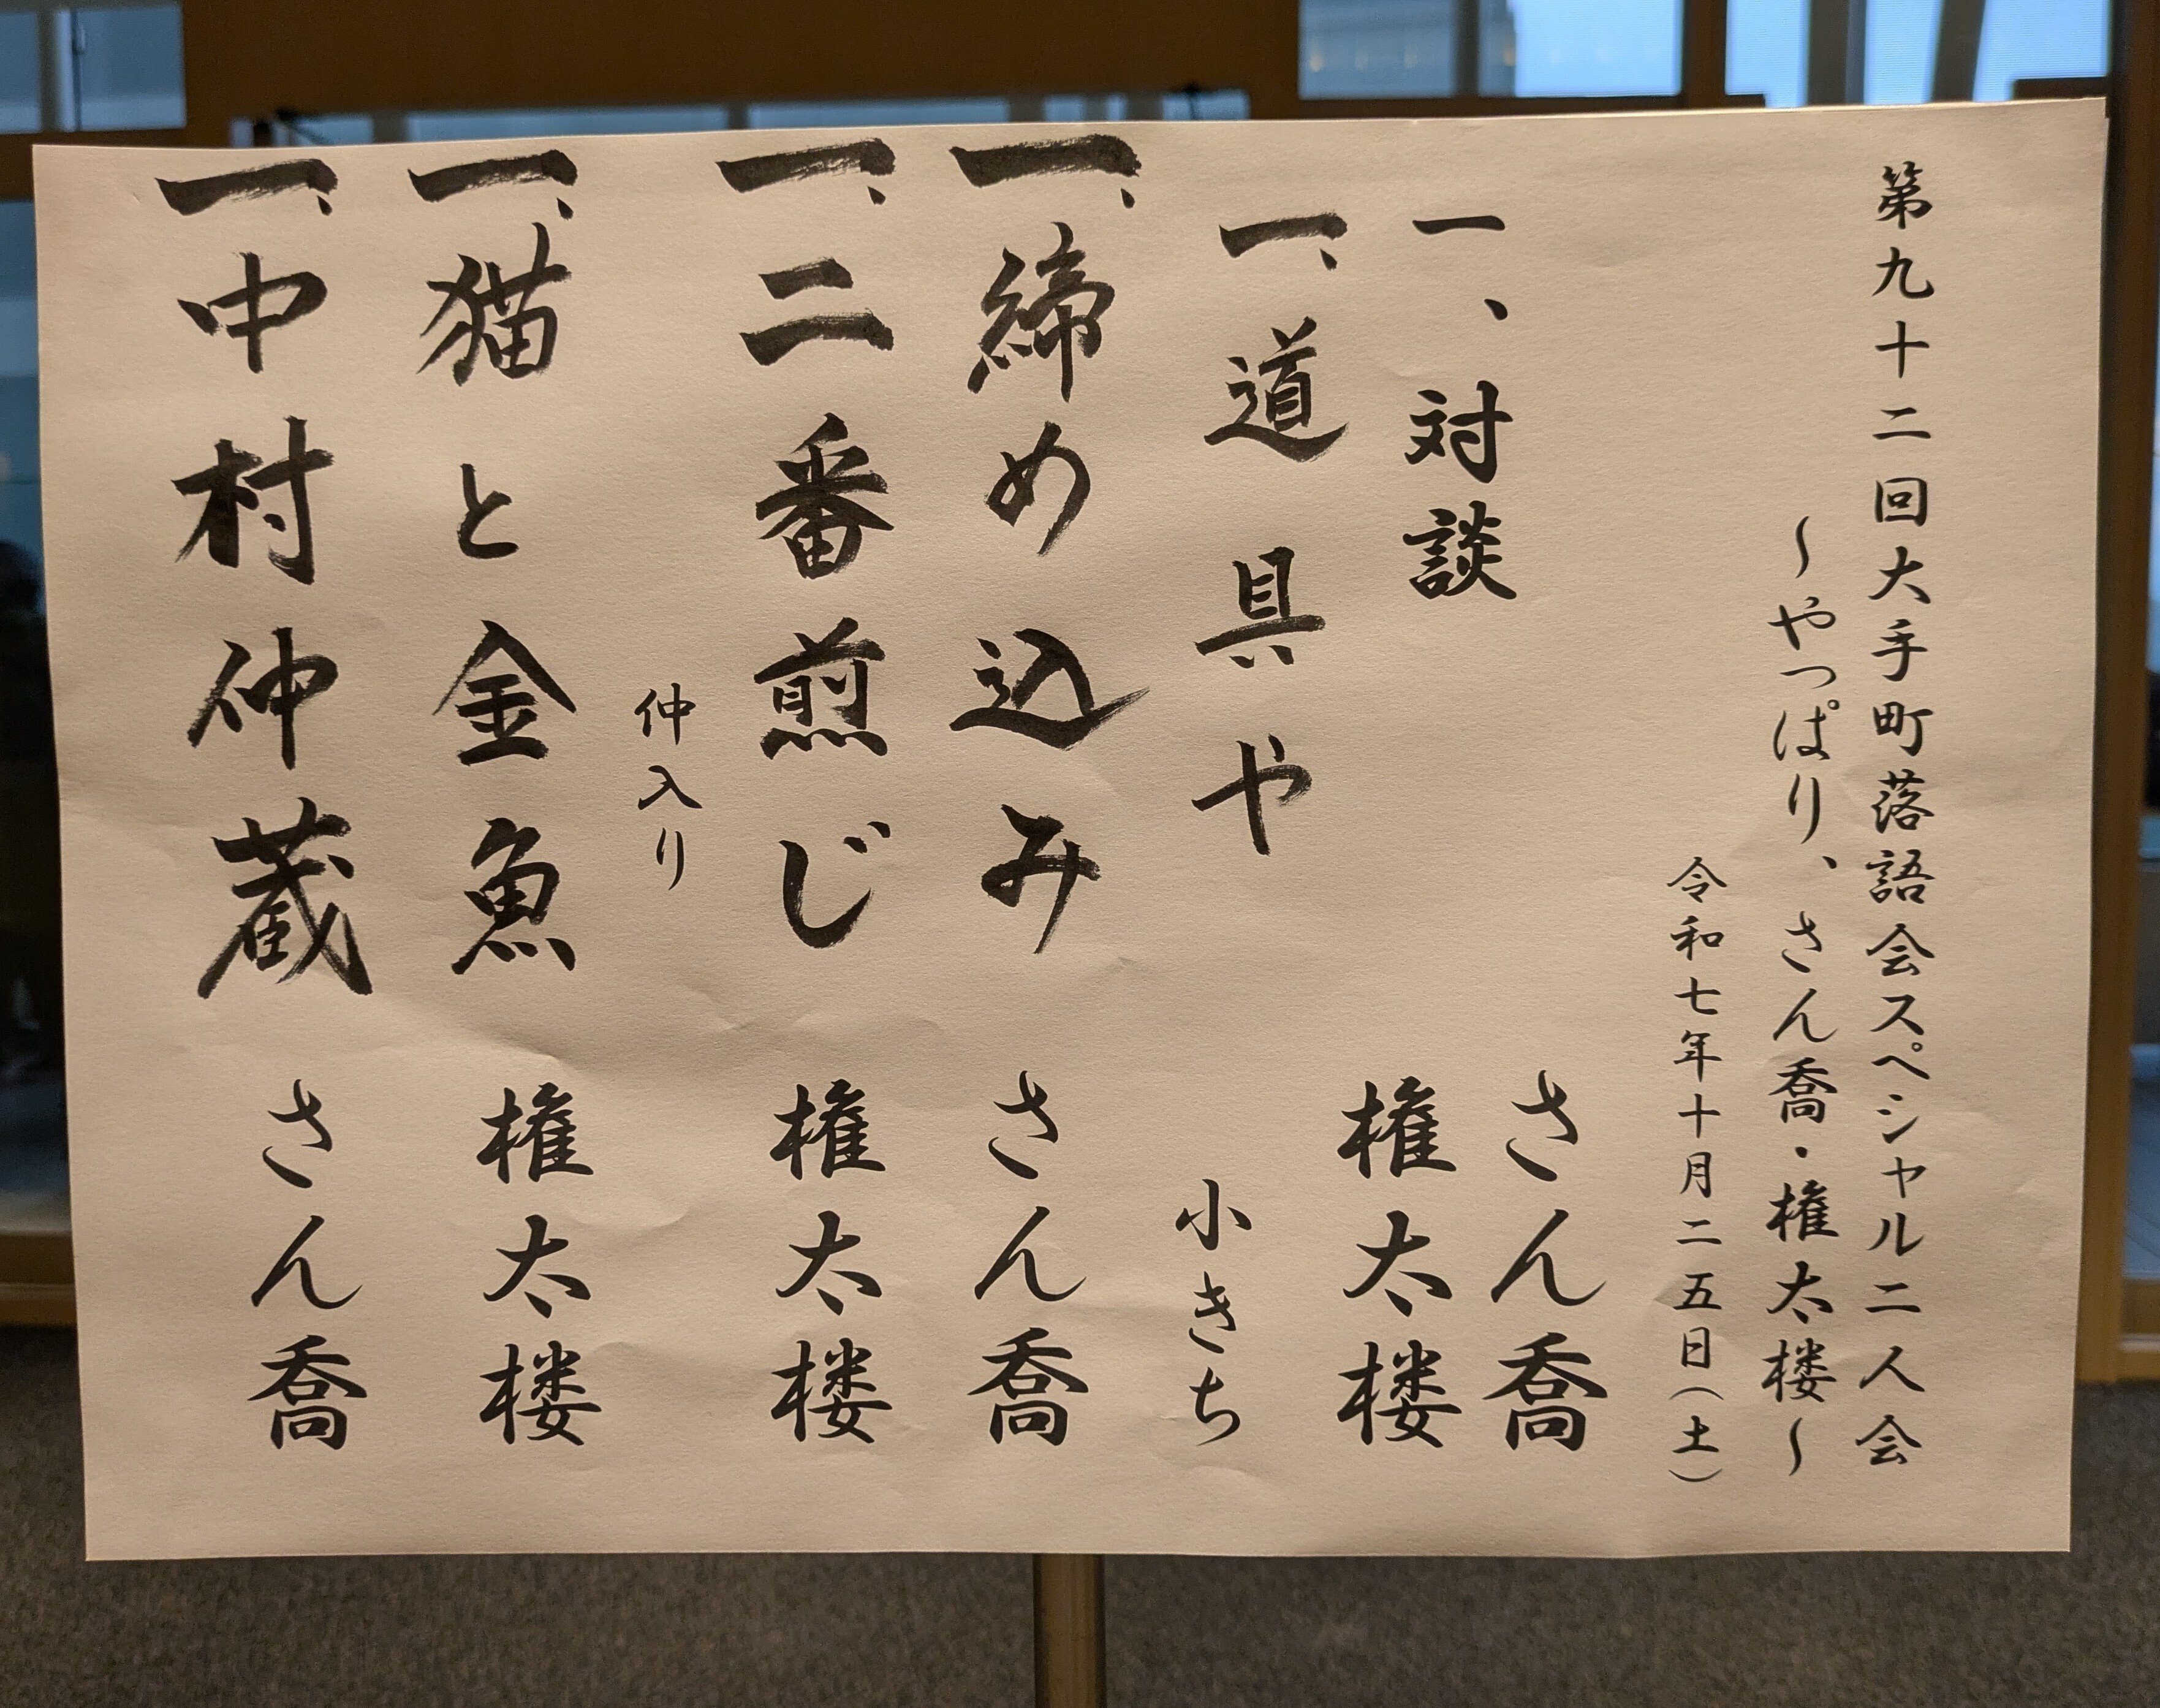 第九十二回大手町落語会スペシャル二人会
～やっぱり、さん喬・権太楼～
令和七年十月二五日（土）
一、対談 さん喬 権太楼
一、道具や 小きち
一、締め込み さん喬
一、二番煎じ 権太楼
仲入り
一、猫と金魚 権太楼
一、中村仲蔵 さん喬